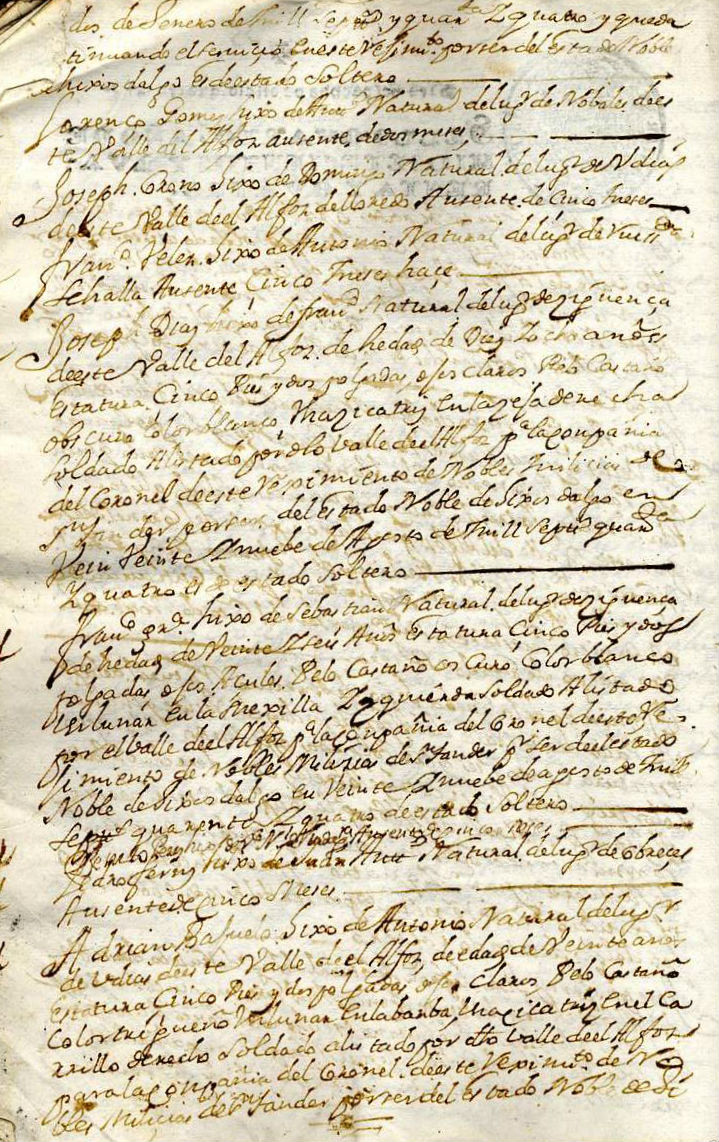 dos de Henero de mill Septtº y quarta Y quatro y queda
tinuando el servicio En este Reximto. por ser del Estado Noble
e hixos dalgo es de estado Soltero
Lorenço Gomez hixo de Anttº Natural del lugr de Nobales de es
te Valle del Alfoz ausente de dos meses
Joseph. Corono hixo de Domingo Natural del lugr de Vdias
de este Valle de el Alfoz de lloredo Ausente de Cinco meses
Franco. Velez. hixo de Antonio Natural del lugr de
se halla Ausente Cinco meses haçe
Joseph Diaz hixo de franco Natural del lugr de ziguenca
de este Valle del Alfoz. de hedad de Diez Y ocho años
Estatura Cinco Pies y dos polgadas ojos claros Pelo Castaño
obscuro Color blanco Vna zicatriz en la zeja derecha
Soldado Alistado por dho Valle de el Alfoz pa la conpañia
del Coronel de este Reximiento de Nobles milicias de
por ser del Estado Noble de hixos dalgo en
Veinte Y nuebe de Agosto de mill Septts quarta
Y quatro es de estado Soltero
Franco hixo de Sebastian Natural. del lugr de ziguenca
de hedad de Veinte Y seis Años Estatura Cinco Pies y dos
polgadas ojos Açules. Pelo Castaño oscuro. Color blanco
Vn lunar En la mexilla Yzquierda Soldado Alistado
por el Valle de el Alfoz pa la conpañia del Coronel de este Re-
ximiento de Nobles Milicias de Sn tander pr ser de el estado
Noble de hixos dalgo en Veinte Y nuebe de agosto de mill
septts quarenta Y quatro de estado Soltero
Ausente de cinco meses
Pedro ferrnz hixo de Juan Anttº Natural. del lugr de Cobreçes
Ausente de cinco Meses
Adrian Bañuelo hixo de Antonio Natural del lugr
de Vdias de este Valle de el Alfoz, de edad de Veinte años
Estatura Cinco Pies y dos polgadas ojos Claros Pelo Castaño
Color trigueño Vn lunar En la barba Vna çicatriz En el Ca
rrillo derecho Soldado alistado por dho Valle de el Alfoz
para la conpañia del Coronel. de este Reximto. de No
bles Miliçias de Sn tander por ser del Estado Noble de hi